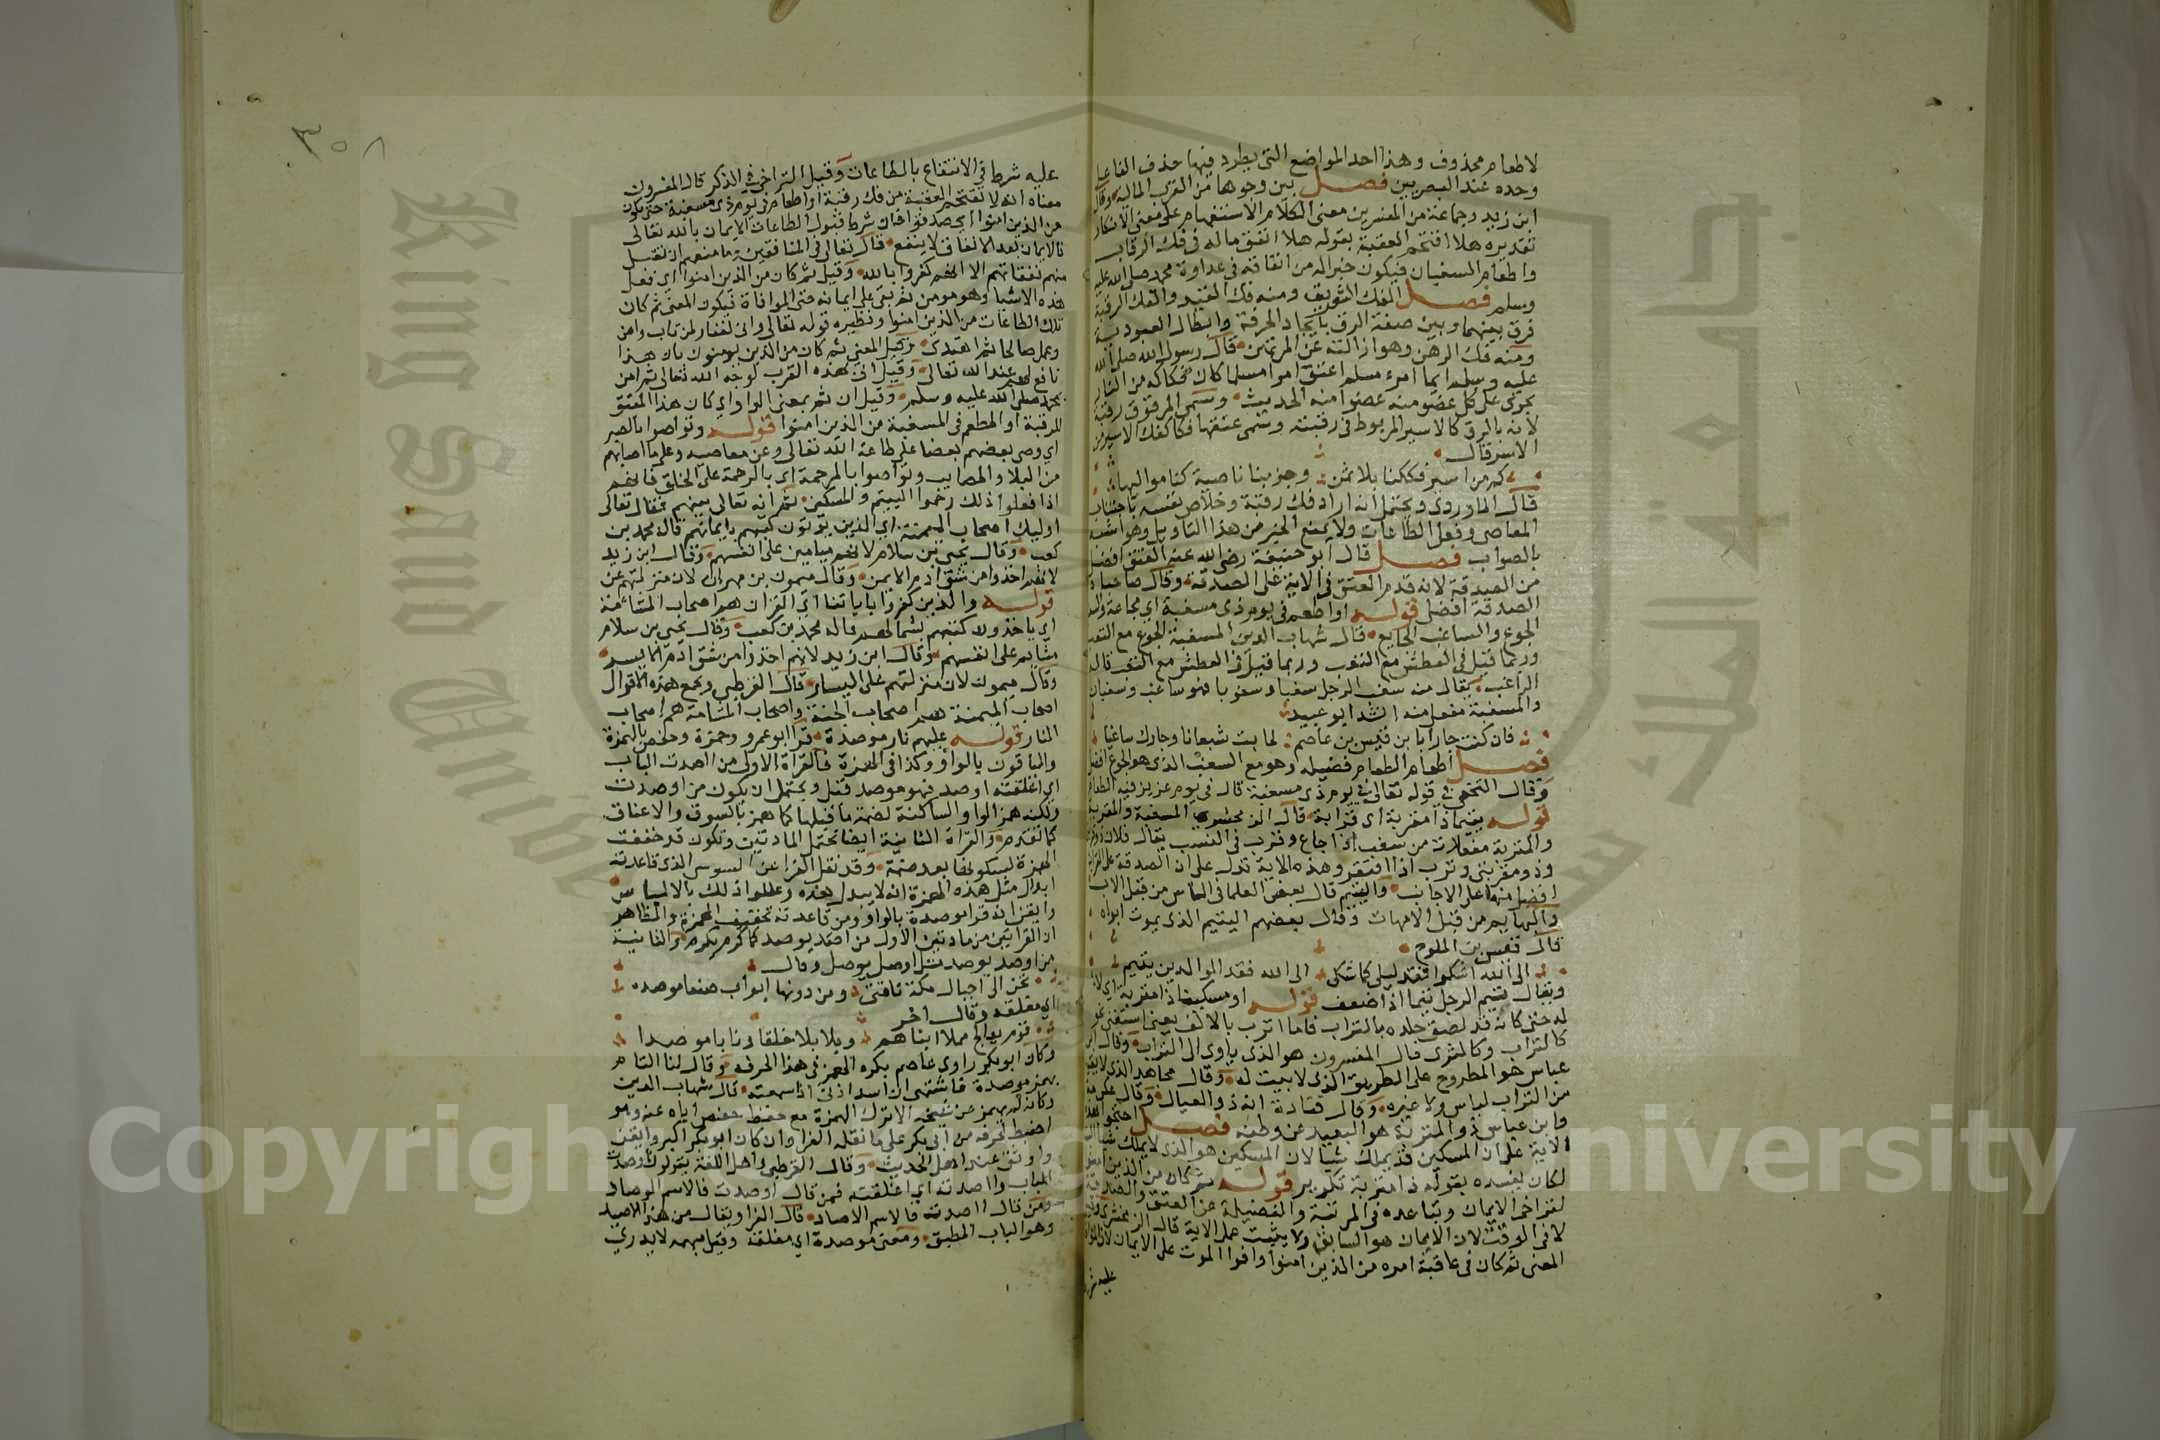 لاطعام محذوف وهذا احد المواضع التي يطرد فيها حذف الفاعل
وحده عند البصريين فصل بين وجوهها من القرب المالية وقال
ابن زيد وجماعة من المفسرين معنى الكلام الاستفهام على معنى الانكار
تقديره هلا اقتحم العقبة بقوله هلا انفق ماله في فك الرقاب
واطعام السغبان فيكون خيرا له من انفاقه في عداوة محمد صلى الله عليه
وسلم فصل الفك التفريق ومنه فك القيد وفك الرقبة
فرق بينها وبين صفة الرق بايجاد الحرية وابطال العبودية
ومنه فك الرهن وهو ازالته عن المرتهن قال رسول الله صلى الله
عليه وسلم ايما امرء مسلم اعتق امرا مسلما كان فكاكه من النار
يجزى على كل عضو منه عضوا منه الحديث وسمى المرقوق رقبة
لانه بالرق كالاسير المربوط في رقبته وسمى عتقها فكا كفك الاسير من
الاسر قال
كم من اسير فككنا بلا ثمن وجز منا ناصية كنا مواليها
قال الماوردي ويحتمل انه اراد فك رقبة وخلاص نفسه باجتناب
المعاصي وفعل الطاعات ولا يمنع الخبر من هذا التاويل وهو اشبه
بالصواب فصل قال ابو حنيفة رضي الله عنه العتق افضل
من الصدقة لانه قدم العتق في الاية على الصدقة وقال صاحباه
الصدقة افضل قوله او اطعم في يوم ذي مسغبة اي مجاعة
الجوع والساغب الجايع قال شهاب الدين المسغبة الجوع مع التعب
وربما قيل في العطش مع التعب وربما قيل في العطش مع التعب قاله
الراغب يقال منه سغب الرجل سغبا وسغوبا فهو ساغب وسغبان
والمسغبة مفعل منه انشد ابو عبيد
فان كنت جارا يا بن قيس بن عاصم لما بت شبعانا وجارك ساغبا
فصل اطعام الطعام فضيله وهو مع السغب الذي هو الجوع افضل
وقال النخعي في قوله تعالى في يوم ذي مسغبة قال في يوم عزيز فيه الطعام
قوله يتيما ذا مقربة اي قرابة قال الزمخشري المسغبة والمقربة
والمتربة مفعلات من سغب اذا جاع وقرب في النسب يقال فلان
وذو مقربتي وترب اذا افتقر وهذه الاية تدل على ان الصدقة على
افضل منها على الاجانب واليتيم قال بعض العلما في الناس من قبل الاب
والبهايم من قبل الامهات وقال بعضهم اليتيم الذي يموت ابواه
قال قيس بن الملوح
الى الله اشكوا فقد ليلى كما شكى الى الله فقد الوالدين يتيم
ويقال يتيم الرجل يتما اذا ضعف قوله او مسكينا ذا متربة اي لا
له حتى كانه قد لصق جلده بالتراب فاما اترب بالالف يعني استغنى
كالتراب وكالمثرى قال المفسرون هو الذي ياوي الى التراب وقال ابن
عباس هو المطروح على الطريق الذي لا بيت له وقال مجاهد الذي لا يقيه
من التراب لباس ولا غيره وقال قتادة انه ذو العيال وقال عكرمة
وابن عباس ذو المتربة هو البعيد عن وطنه فصل احتجوا بهذه
الاية على ان المسكين قد يملك شيا لان المسكين هو الذي لا يملك شيا
لكان تقييده بقوله ذا متربة تكرير قوله ثم كان من الذين امنوا
لتراخي الايمان وتباعده في المرتبة والفضيلة عن العتق والصدقة
لا في الوقت لان الايمان هو السابق ولا يثبت عمل الا به قال الزمخشري
المعنى ثم كان في عاقبة امره من الذين امنوا وافوا الموت على الايمان لان
عليه شر
٣٥٨
عليه شرط في الانتفاع بالطاعات وقيل التراخي في الذكر قال المفسرون
معناه انه لا تقتحم العقبة من فك رقبة او اطعام في يوم ذي مسغبة حتى يكون
من الذين امنوا اي صدقوا فان شرط قبول الطاعات الايمان بالله تعالى
فالايمان بعد الانفاق لا ينفع قال تعالى في المنافقين وما منعهم ان تقبل
منهم نفقاتهم الا انهم كفروا بالله وقيل ثم كان من الذين امنوا اي فعل
هذه الاشيا وهو مومن ثم بقي على ايمانه حتى الموافاة فيكون المعنى ثم كان
تلك الطاعات من الذين امنوا ونظيره قوله تعالى واني لغفار لمن تاب وامن
وعمل صالحا ثم اهتدى وقيل المعنى ثم كان من الذين يومنون بان هذا
نافع لهم عند الله تعالى وقيل اتى بهذه القرب لوجه الله تعالى ثم امن
بمحمد صلى الله عليه وسلم وقيل ان ثم بمعنى الواو اي كان هذا المعتق
للرقبة او المطعم في المسغبة من الذين امنوا قوله وتواصوا بالصبر
اي وصى بعضهم بعضا على طاعة الله تعالى وعن معاصيه وعلى ما اصابهم
من البلا والمصايب وتواصوا بالمرحمة اي بالرحمة على الخلق فانهم
اذا فعلوا ذلك رحموا اليتيم والمسكين ثم انه تعالى بينهم فقال تعالى
اوليك اصحاب الميمنة اي الذين يوتون كتبهم بايمانهم قاله محمد بن
كعب وقال يحيى بن سلام لانهم ميامين على انفسهم وقال ابن زيد
لانهم اخذوا من شق ادم الايمن وقال ميمون بن مهران لان منزلتهم عن
قوله والذين كفروا باياتنا اي القران هم اصحاب المشئمة
اي ياخذون كتبهم بشمالهم قاله محمد بن كعب وقال يحيى بن سلام
مشايم على انفسهم وقال ابن زيد لانهم اخذوا من شق ادم الايسر
وقال ميمون لان منزلتهم على اليسار قال القرطبي ويجمع هذه الاقوال
اصحاب الميمنة هم اصحاب الجنة واصحاب المشامة هم اصحاب
النار قوله عليهم نار موصدة قرا ابو عمرو وحمزة وحفص بالهمزة
والباقون بالواو وكذا في الهمزة فالقراة الاولى من ااصدت الباب
اي اغلقته اوصد فهو موصد قيل ويحتمل ان يكون من اوصدت
ولكنه همز الواو الساكنة لضمة ما قبلها كما همز بالسوق والاعناق
كما تقدم والقراة الثانية ايضا تحتمل المادتين وتكون قد خففت
الهمزة لسكونها بعد ضمة وقد نقل الفرا عن السوسي الذي قاعدته
ابدال مثل هذه الهمزة انه لا يبدل هذه وعللوا ذلك بالالباس
وايقن انه قرا موصدة بالواو ومن قاعدته تخفيف الهمزة والظاهر
ان القراتين من مادتين الاولى من ااصد يوصد كاكرم يكرم والثانية
من اوصد يوصد مثل اوصل يوصل وقال
تحن الى اجبال مكة ناقتي ومن دونها ابواب صنعا موصده
اي مغلقة وقال اخر
قوم يعالج قملا ابناهم وسلاسلا حلقا وبابا موصدا
وكان ابو بكر راوي عاصم يكره الهمز في هذا الحرف وقال لنا امام
يهمز موصدة فاشتهي ان اسد اذني اذا سمعته قال شهاب الدين
وكانه لم يهمز عن شيخه الا ترك الهمزة مع حفظ حفص اياه عنه وهو
اضبط لحرفه من ابي بكر على ما نقله الفرا وان كان ابو بكر اكبر وايقن
واوثق عند اهل الحديث وقال القرطبي واهل اللغة يقولون اوصدت
الباب وااصدته اي اغلقته فمن قال اوصدت فالاسم الوصاد
ومن قال ااصدته فالاسم الاصاد قال الفرا ويقال من هذا الاصيد
وهو الباب المطبق ومعنى موصدة اي مغلقة وقيل مبهمه لا يدري
Copyright University
King Saud University
جامعة الملك سعود